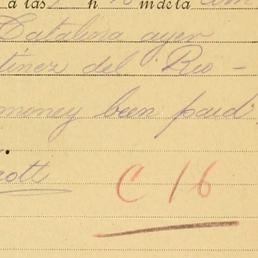 a las h m de la
Catalina ayer
tinez del Rio -
money been paid
ott
C 16